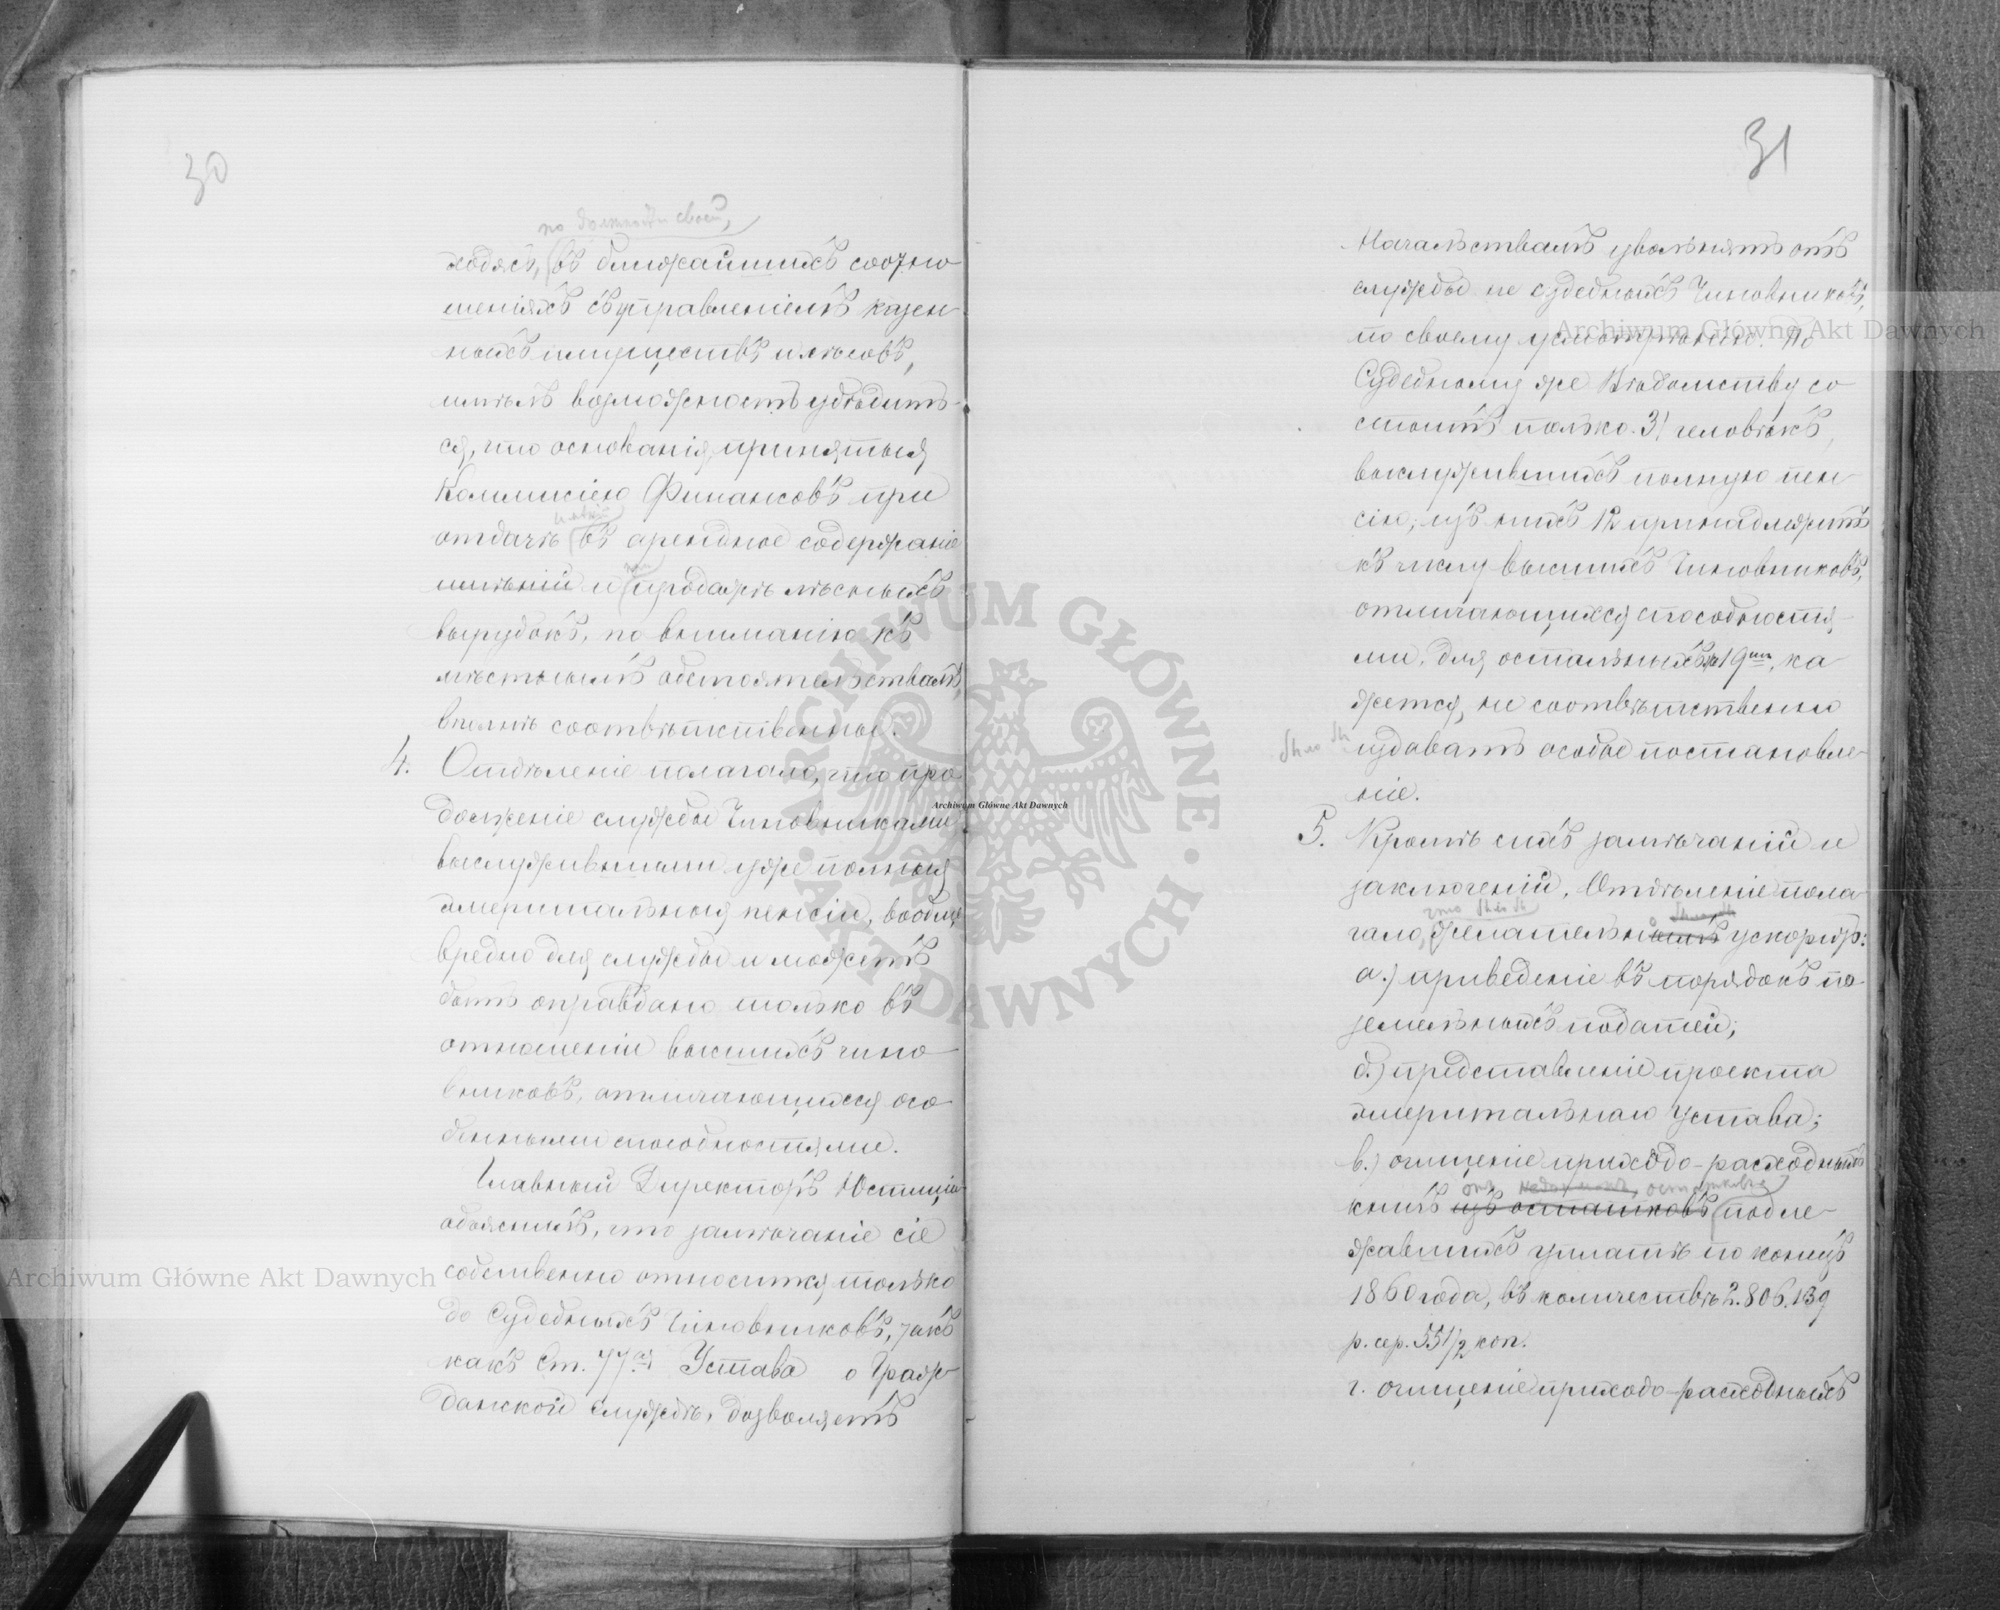 30
по должности своей,
ходясь, въ ближайшихъ соотно
шеніяхъ съ управленіемъ казен
ныхъ имуществъ и лѣсовъ,
имѣлъ возможность убѣдить-
ся, что основанія, принятыя
Коммисіею Финансовъ при
имѣній
отдачѣ въ арендное содержаніе
имѣній и продажѣ лѣсныхъ
вырубокъ, по вниманію къ
мѣстнымъ обстоятельствамъ,
вполнѣ соотвѣтственны.
4. Отдѣленіе полагало, что про
долженіе службы Чиновниками
выслужившими уже полныя
эмеритальныя пенсіи, вообще
вредно для службы и можетъ
быть оправдано только въ
отношеніи высшихъ чино
вниковъ, отличающихся осо
бенными способностями.
Главный Директоръ Юстиціи
объяснилъ, что замѣчаніе сіе
собственно относится только
до Судебныхъ Чиновниковъ, такъ
какъ Ст. 77 Устава о Граж
данской службѣ, дозволяетъ
31
Начальствамъ увольнять отъ
службы не судебныхъ Чиновниковъ,
по своему усмотрѣнію. По
Судебному же Вѣдомству со
стоитъ только 31 человѣкъ,
выслужившихъ полную пен
сію; изъ нихъ 12 принадлежитъ
къ числу высшихъ Чиновниковъ,
отличающихся способностя
ми, для остальныхъ 19, ка
жется, не соотвѣтственно
было бы
издавать особое постановле
ніе.
5. Кромѣ сихъ замѣчаній и
заключеній, Отдѣленіе пола
что было бы
гало, желательнымъ ускорить:
а.) приведеніе въ порядокъ по
земельныхъ податей;
б.) представленіе проекта
эмеритальнаго Устава;
в.) очищеніе приходо-расходныхъ
отъ недоимокъ, остатковъ
книгъ изъ остатковъ подле
жавшихъ уплатѣ по конецъ
1860 года, въ количествѣ 2.806.139
р. сер. 55 1/2 коп.
г. очищеніе приходо-расходныхъ
Archiwum Główne Akt Dawnych
Archiwum Główne Akt Dawnych
Archiwum Główne Akt Dawnych
ARCHIWUM GŁÓWNE · AKT DAWNYCH ·